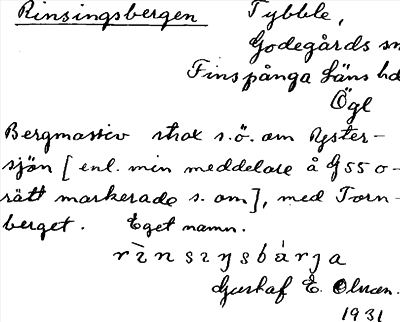 Rinsingsbergen Tybble,
Godegårds sn
Finspånga läns hd
Ögl
Bergmassiv strax s.ö. om Ryster-
sjön [enl. min meddelare å G 55 o-
rätt markerade s. om], med Torn-
berget. Eget namn.
Gustaf E. Olsson.
1931